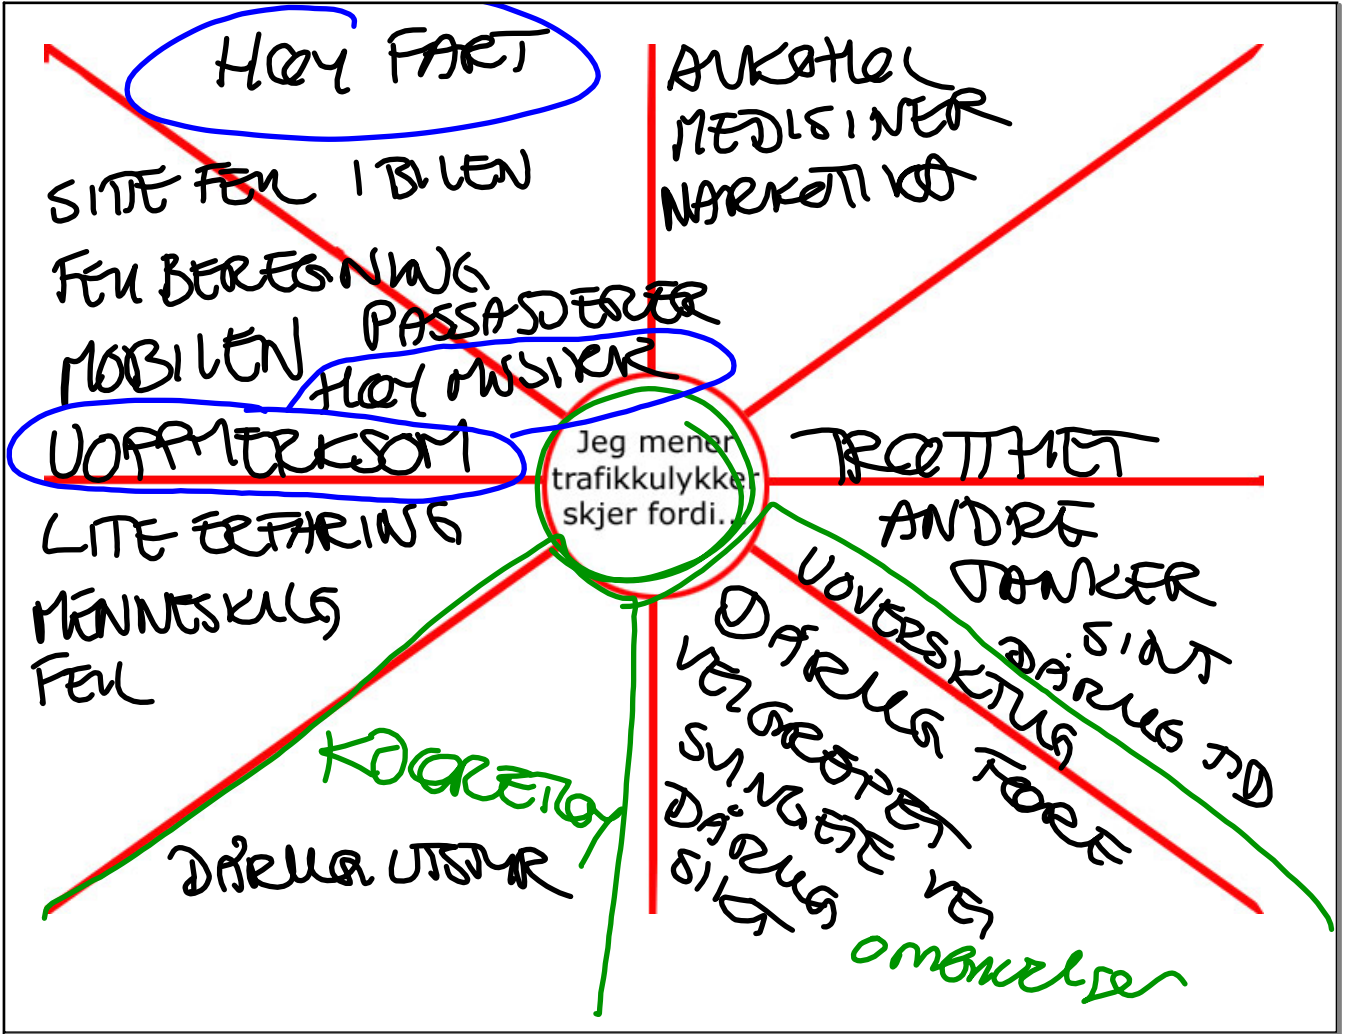 HØY FART
SITTE FEIL I BILEN
FEILBEREGNING
PASSASJERER
MOBILEN
HØY MUSIKK
UOPPMERKSOM
LITE ERFARING
MENNESKLIG
FEIL
ALKOHOL
MEDISINER
NARKOTIKA
Jeg mener
trafikkulykker
skjer fordi...
TRØTTHET
ANDRE
TANKER
SINT
DÅRLIG TID
UOVERSIKTLIG
DÅRLIG FØRE
VEIGREPET
SVINGETE VEI
DÅRLIG
SIKT
KJØRETØY
DÅRLIG UTSTYR
OMGIVELSER